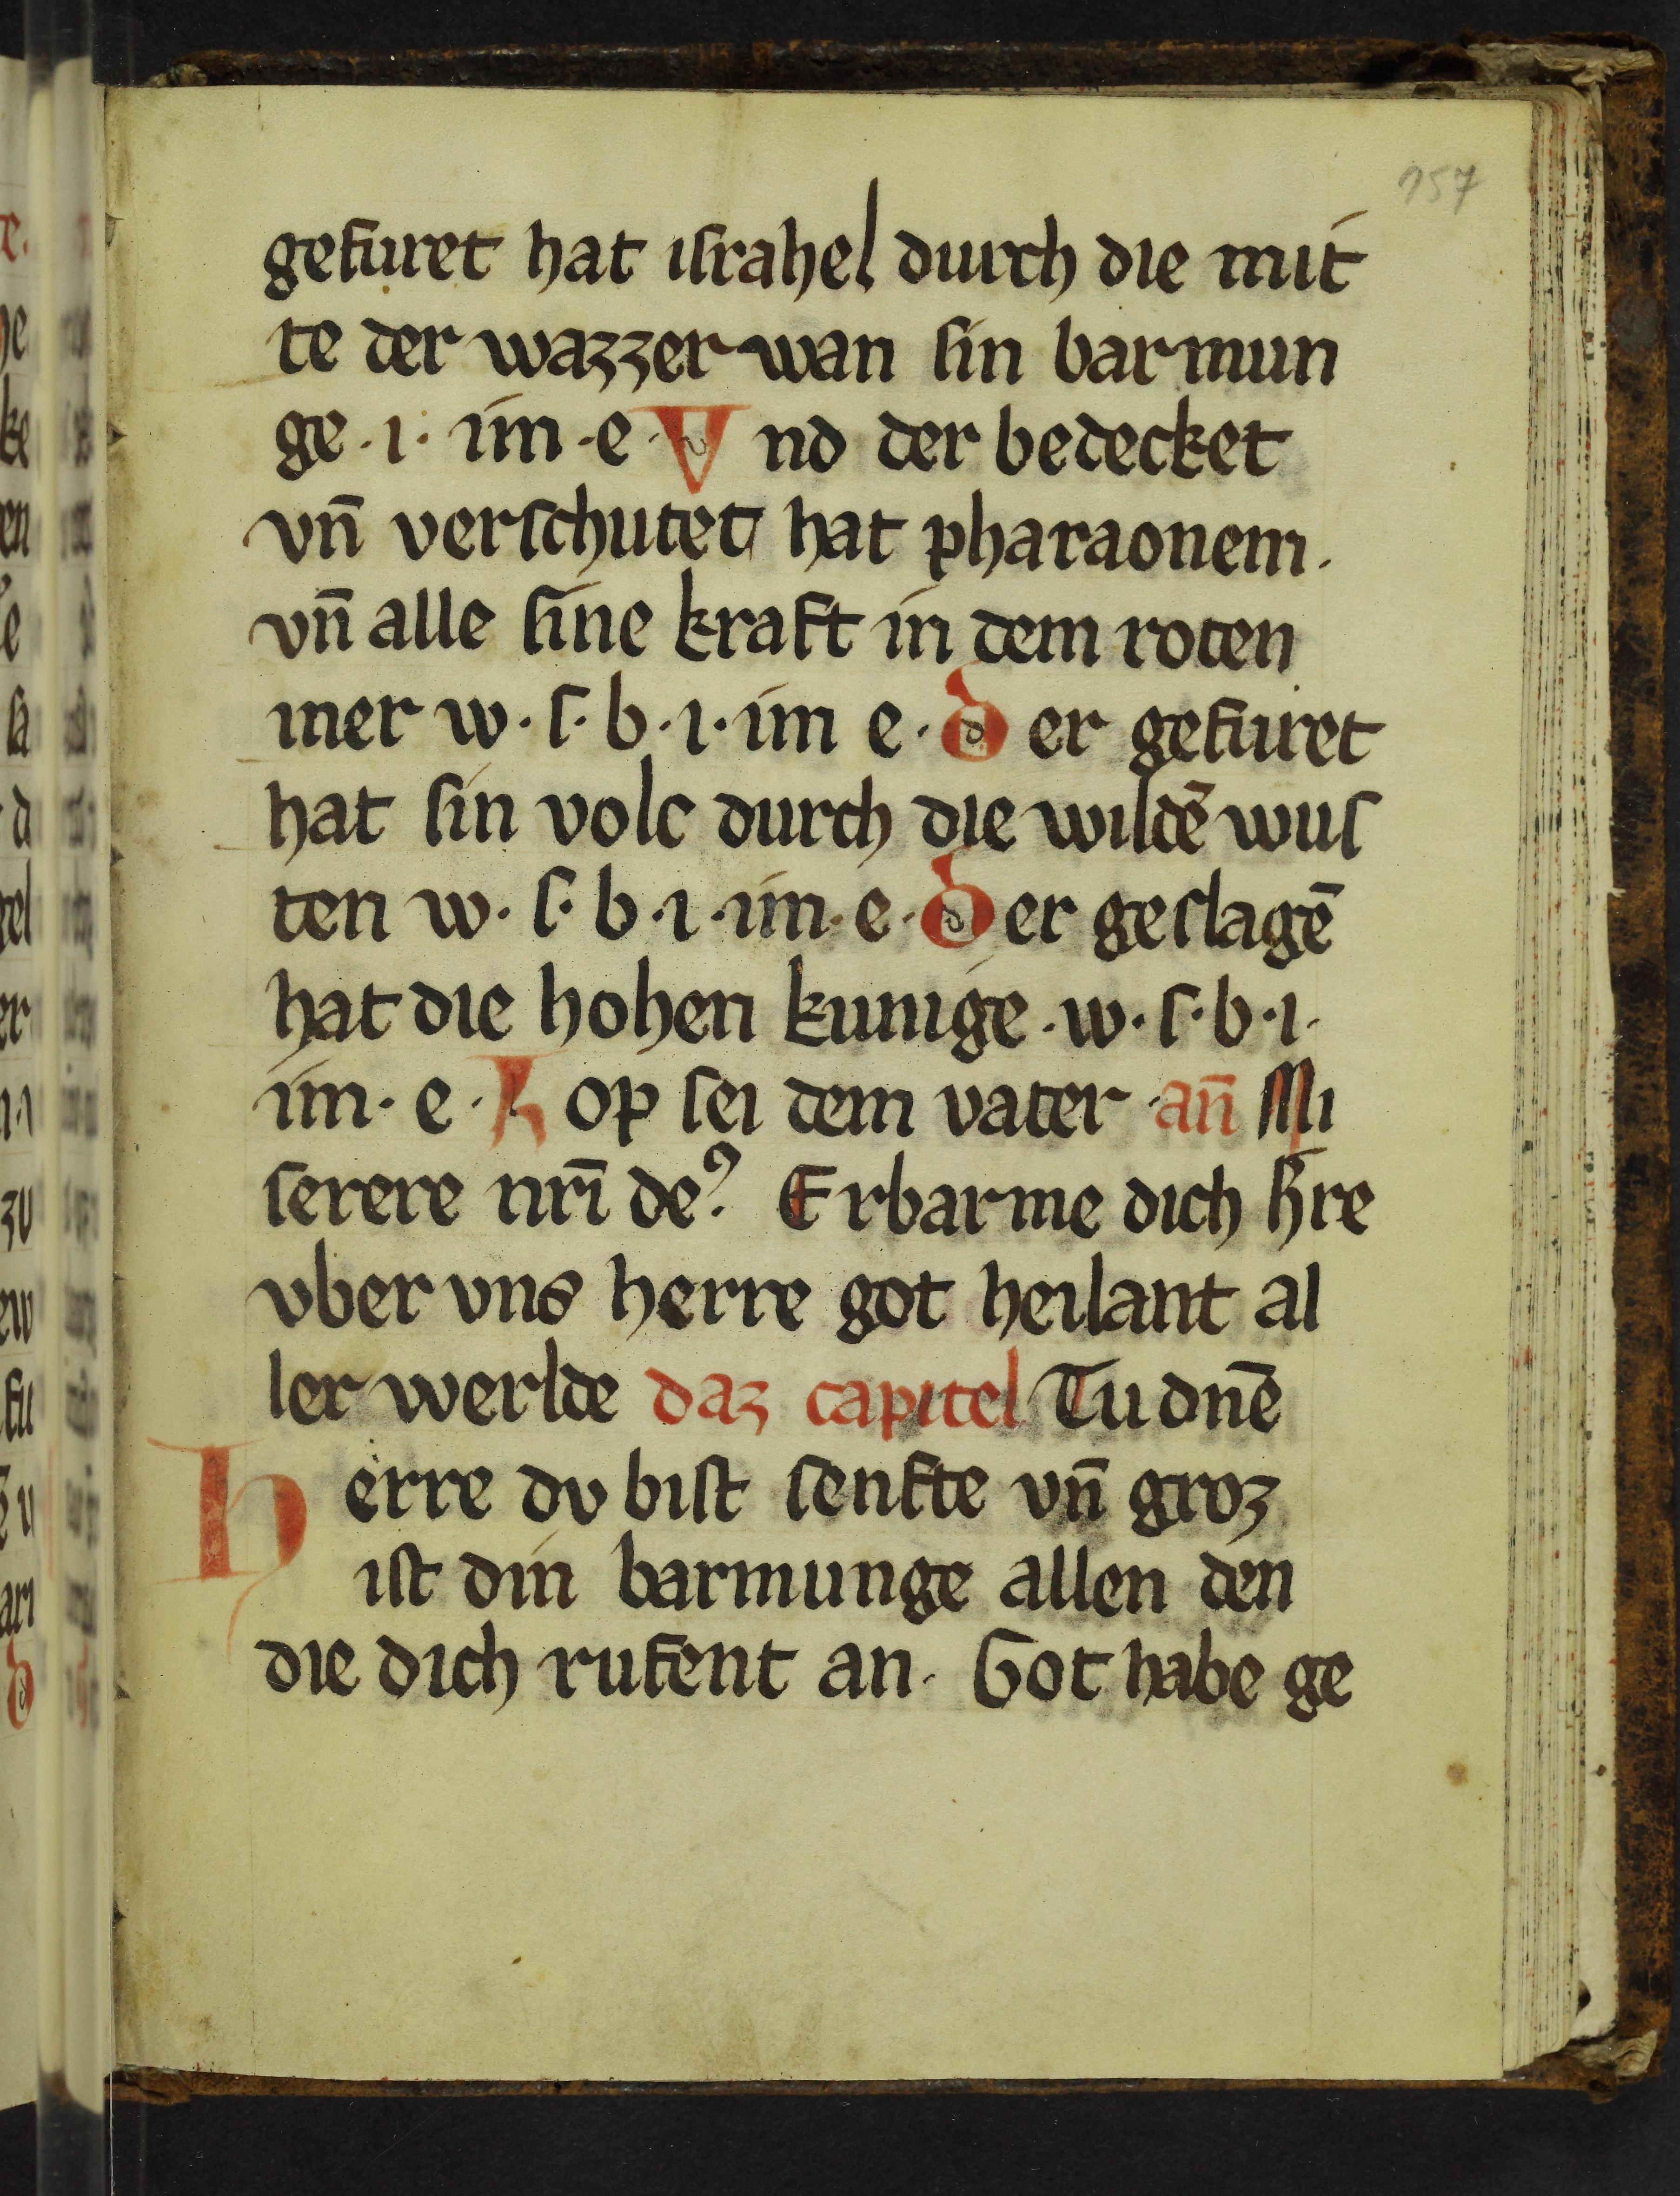 157
gefuret hat iſrahel durch die mit
te der wazzer wan ſin barmun
ge · i · im · e · Vnd der bedecket
vn̄ verſchutet hat pharaonem ·
vn̄ alle ſine kraft in dem roten
mer w · ſ · b · i · im e · der gefuret
hat ſin volc durch die wildē wuſ
ten w · ſ · b · i · im · e · der geſlagē
hat die hohen kunige · w · ſ · b · i ·
im · e · Lop ſei dem vater · an̄ Mi
ſerere nr̄i deꝰ · Erbarme dich h̄re
vber vns herre got heilant al
ler werlde daz capitel Tu dn̄e
Herre dv biſt ſenfte vn̄ groz
iſt din barmunge allen den
die dich rufent an · Got habe ge